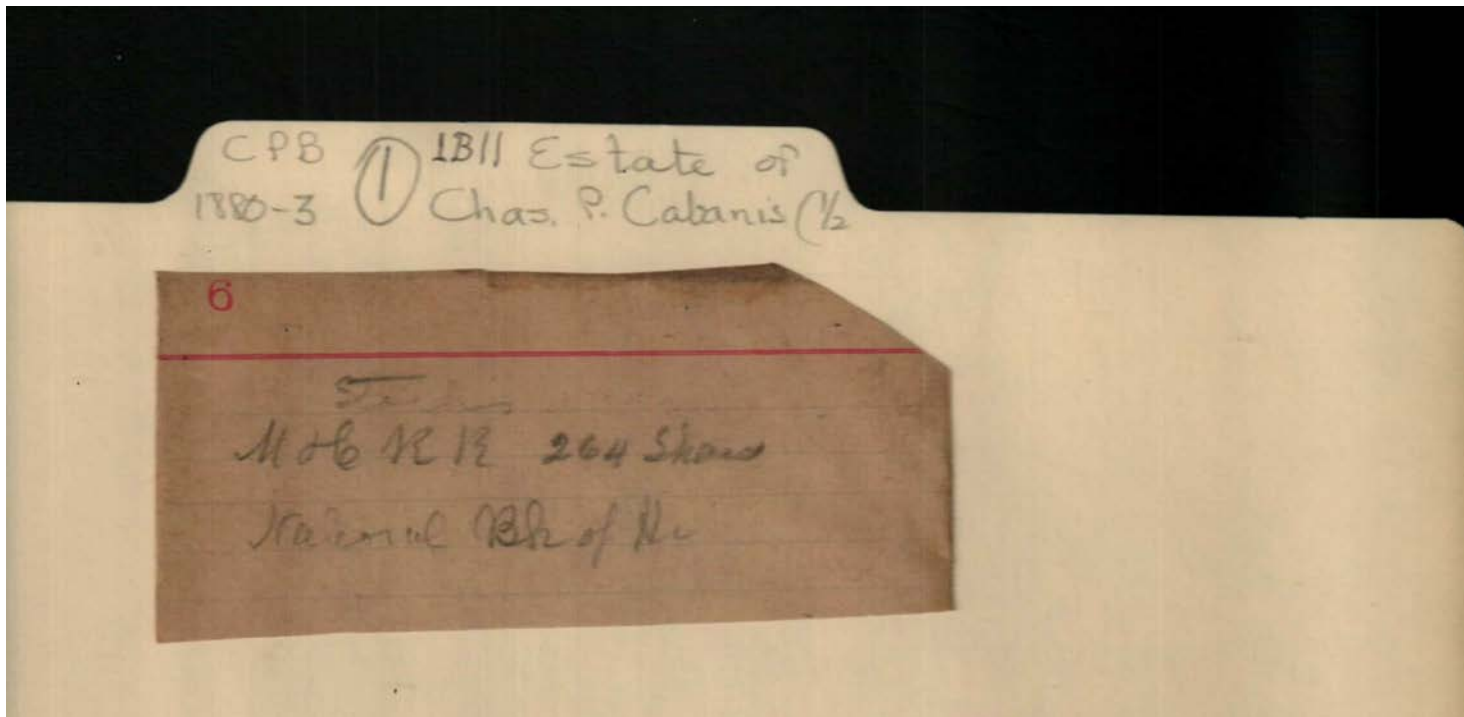 CPB ① 1B11 Estate of
1880-3 Chas. P. Cabanis (1/2
6
M & C R R 264 Shares
National Bk of